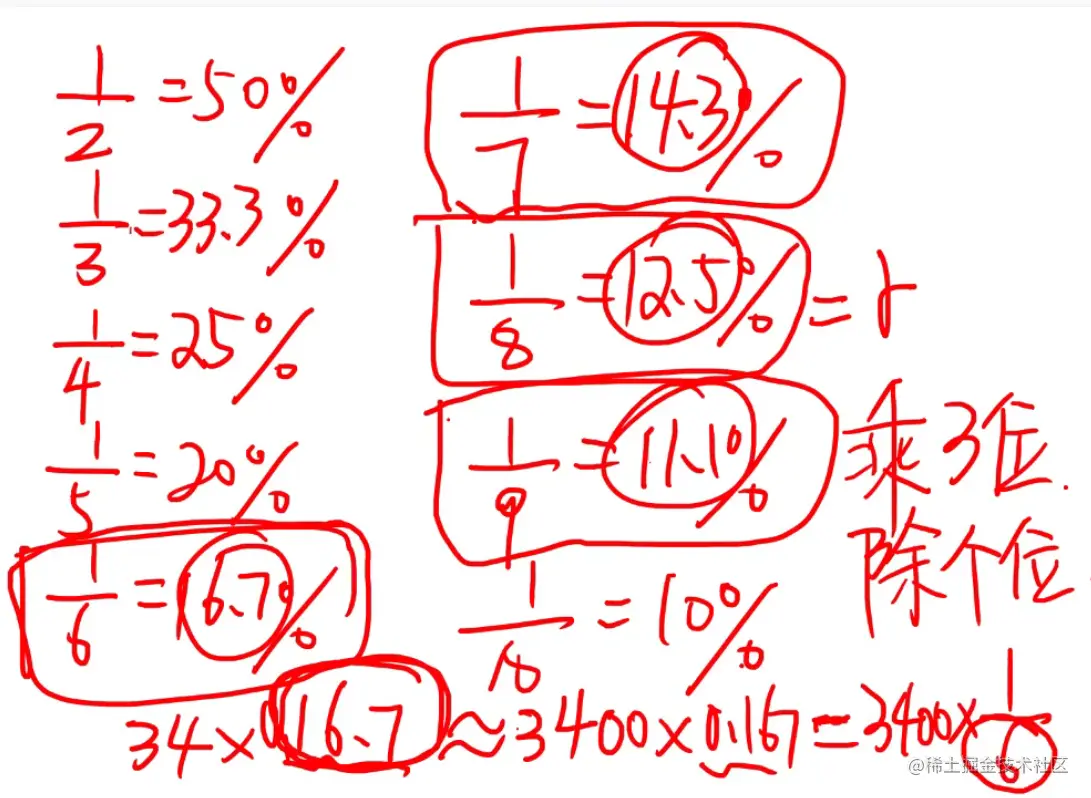 1/2 = 50%
1/3 = 33.3%
1/4 = 25%
1/5 = 20%
1/6 = 16.7%
1/7 = 14.3%
1/8 = 12.5% =
1/9 = 11.1%
1/10 = 10%
乘3位.
除个位.
34×16.7≈3400×0.167=3400×1/6
@稀土掘金技术社区